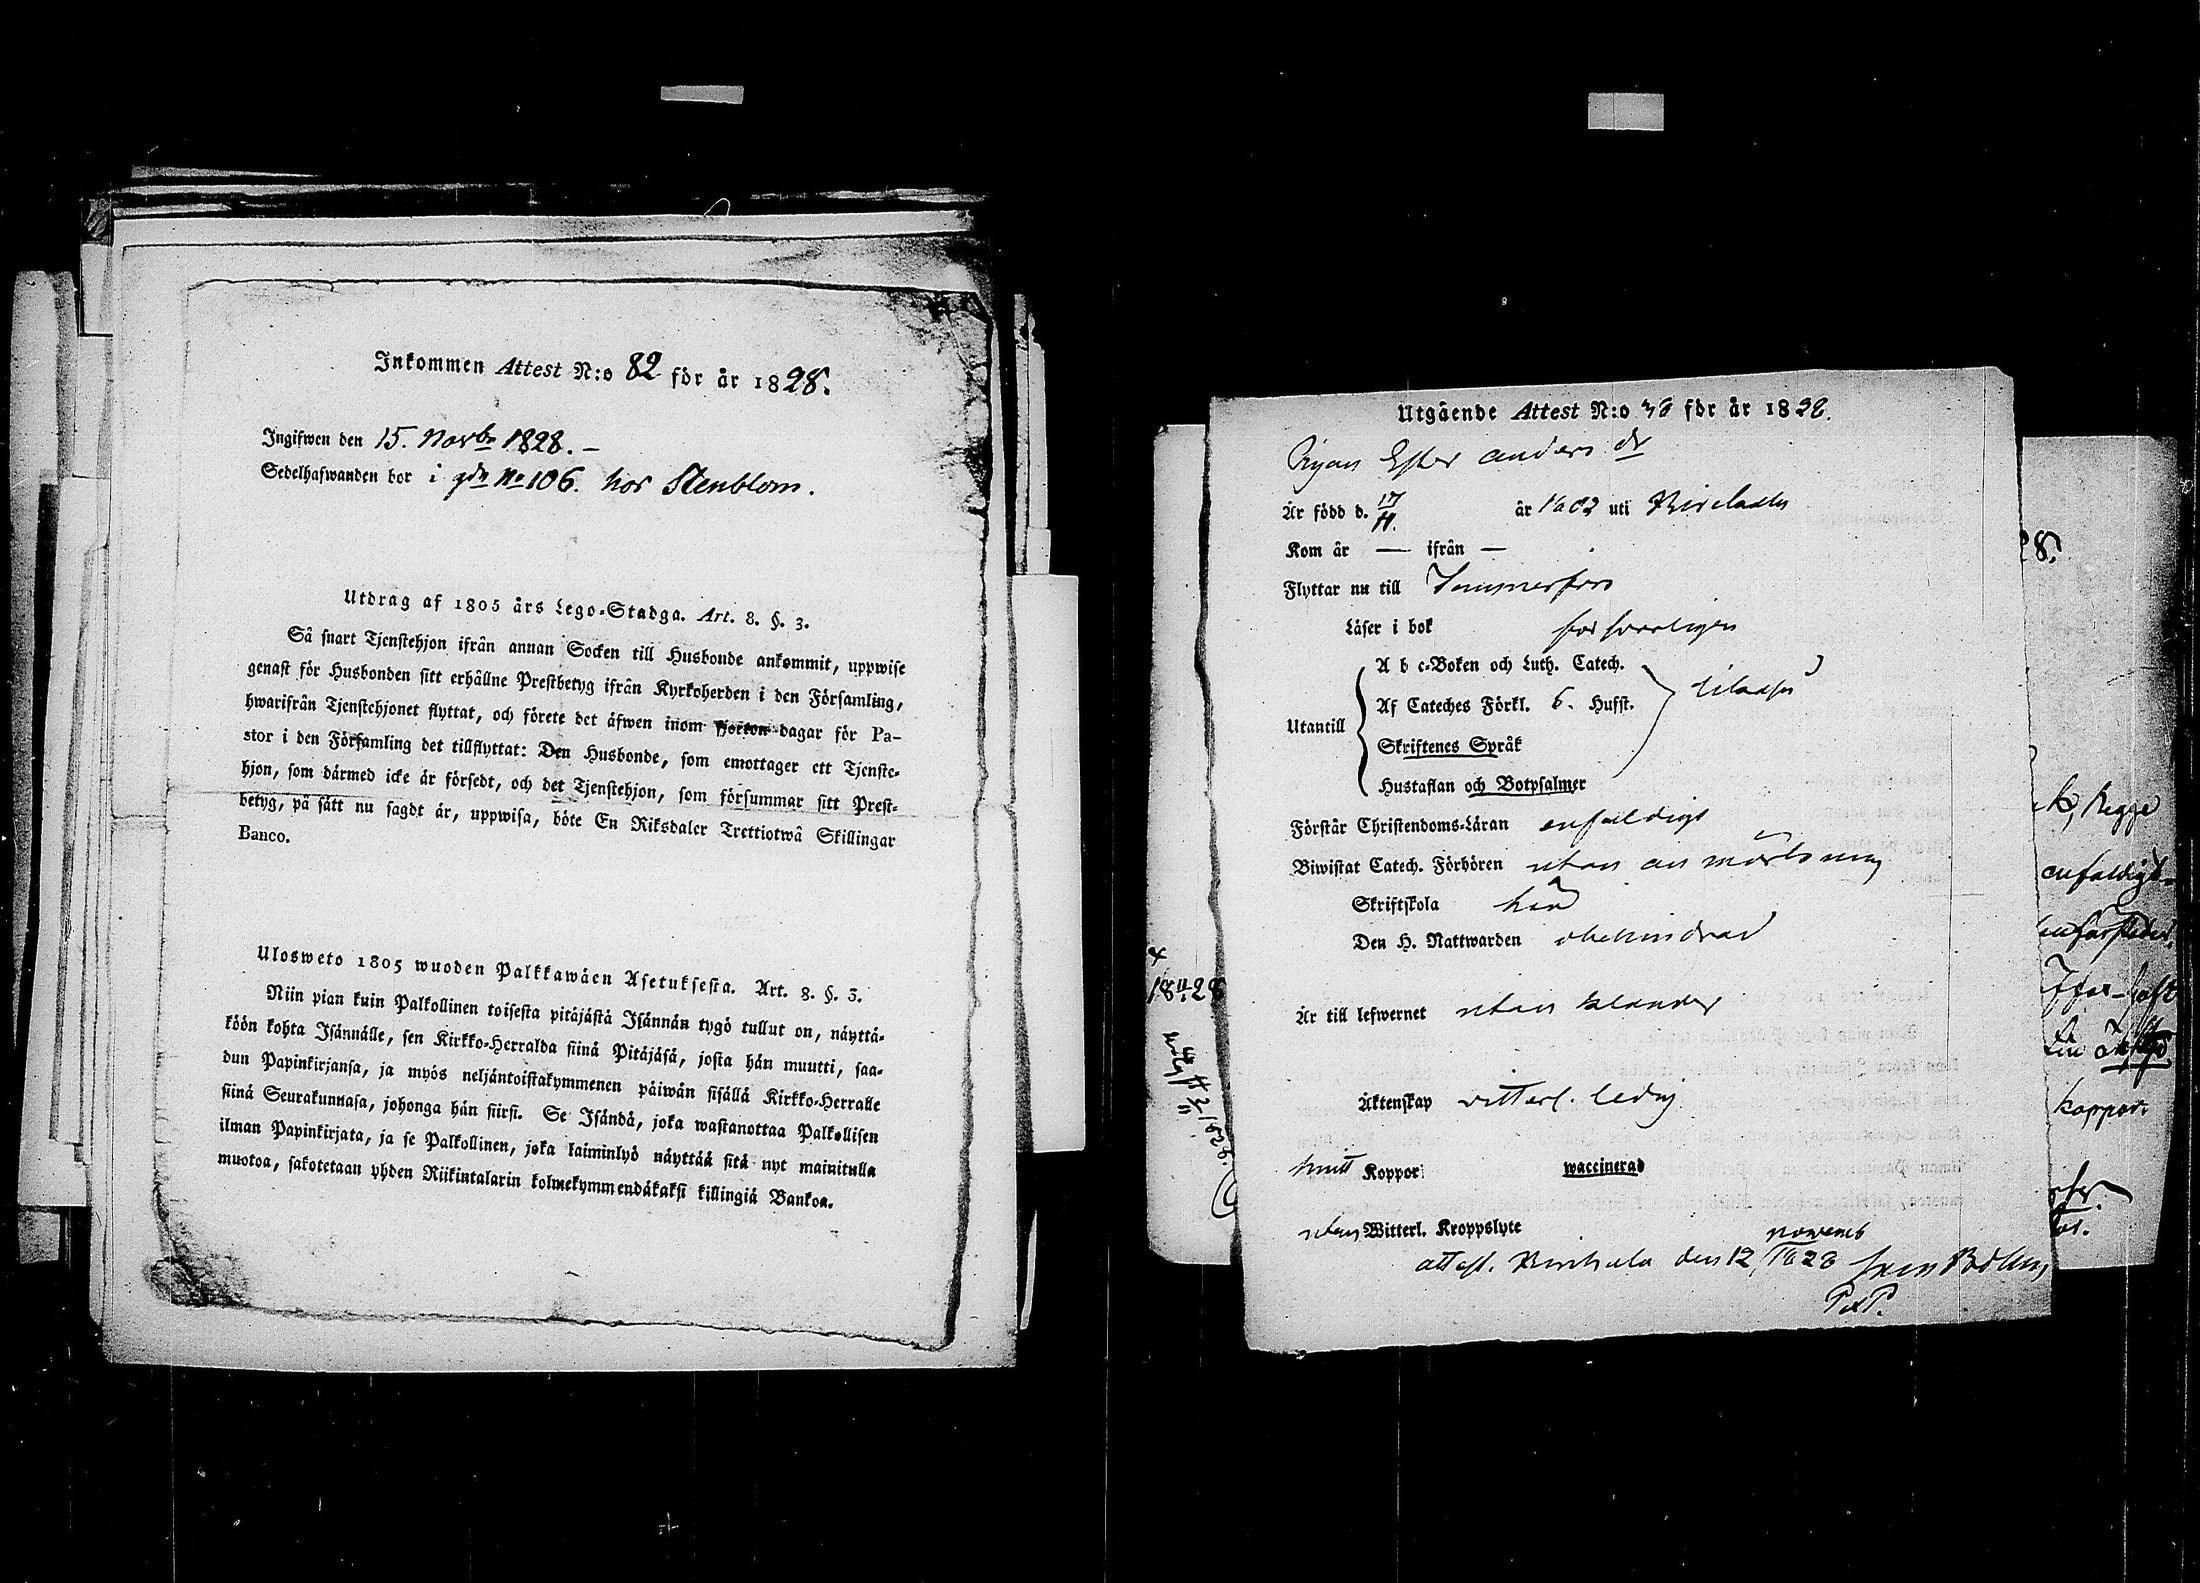 Inkommen Attest N:o 82 för år 1828.
Ingifwen den 15. Novbr 1828. –
Sedelhafwanden bor i gdn No 106. hos Stenblom.
Utdrag af 1805 års Lego-Stadga. Art. 8. §. 3.
Så snart Tjenstehjon ifrån annan Socken till Husbonde ankommit, uppwise
genast för Husbonden sitt erhållne Prestbetyg ifrån Kyrkoherden i den Församling,
hwarifrån Tjenstehjonet flyttat, och förete det äfwen inom fjorton dagar för Pa-
stor i den Församling det tillflyttat: Den Husbonde, som emottager ett Tjenste-
hjon, som därmed icke är försedt, och det Tjenstehjon, som försummar sitt Prest-
betyg, på sätt nu sagdt är, uppwisa, böte En Riksdaler Trettiotwå Skillingar
Banco.
Ulosweto 1805 wuoden Palkkawäen Asetuksesta. Art. 8. §. 3.
Niin pian kuin Palkollinen toisesta pitäjästä Isännän tygö tullut on, näyttä-
köön kohta Isännälle, sen Kirkko-Herralda siinä Pitäjäsä, josta hän muutti, saa-
dun Papinkirjansa, ja myös neljäntoistakymmenen päiwän sisällä Kirkko-Herralle
siinä Seurakunnasa, johonga hän siirsi. Se Isändä, joka wastanottaa Palkollisen
ilman Papinkirjata, ja se Palkollinen, joka laiminlyö näyttää sitä nyt mainitulla
muotoa, sakotetaan yhden Riikintalarin kolmekymmendäkaksi killingiä Bankoa.
Utgående Attest N:o 38 för år 1828.
Pigan Ester Anders dr
Är född d. 17/11. år 1802 uti Birckala
Kom år — ifrån —
Flyttar nu till Tammerfors
Läser i bok försvarligen
A b c-Boken och Luth. Catech.
Af Cateches Förkl. 6. Hufst.
Utantill
Skriftenes Språk
Hustaflan och Botpsalmer
Förstår Christendoms-Läran enfaldigt
Biwistat Catech. Förhören utan anmärkning
Skriftskola här
Den H. Nattwarden obehindrad
Är till lefwernet utan klander
Äktenskap witterl. ledig
haft Koppor waccinerad
utan Witterl. Kroppslyte
attest. Birckala den 12 novemb 1828
28.
enfaldigt
koppor.